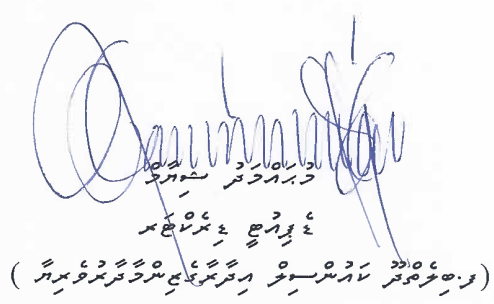 މުޙައްމަދު ޝިޔާމް
ޑެޕިއުޓީ ޑިރެކްޓަރ
(ފ.ބިލެތްދޫ ކައުންސިލް އިދާރާގެޒިންމާދާރުވެރިޔާ )